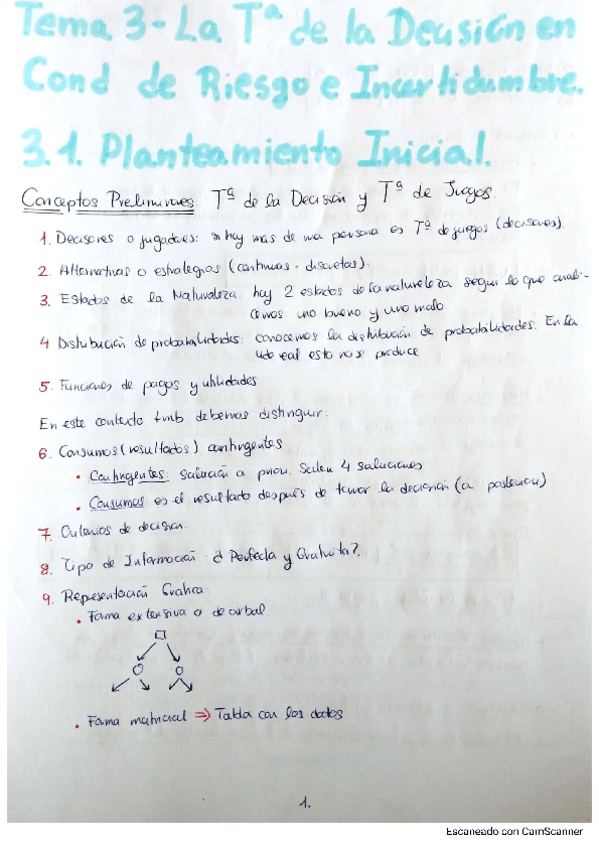 Tema 3 - La Tª de la Decisión en
Cond de Riesgo e Incertidumbre.
3.1. Planteamiento Inicial.
Conceptos Preliminares Tª de la Decisión y Tª de Juegos.
1. Decisores o jugadores: si hay mas de una persona es Tª de juegos (decisores).
2. Alternativas o estrategias (continuas - discretas).
3. Estados de la Naturaleza: hay 2 estados de la naturaleza segun lo que anali-
cemos uno bueno y uno malo.
4 Distribución de probabilidades: conocemos la distribución de probabilidades. En la
vida real esto no se produce
5. Funciones de pagos y utilidades
En este contexto tmb debemos distinguir:
6. Consumos (resultados) contingentes
• Contingentes: solución a priori. Salen 4 soluciones
• Consumos es el resultado después de tomar la decisión (a posteriori)
7. Criterios de decisión.
8. Tipo de Información ¿Perfecta y Gratuita?.
9. Representación Grafica
• Forma extensiva o de arbol
• Forma matricial ⇒ Tabla con los datos
1.
Escaneado con CamScanner